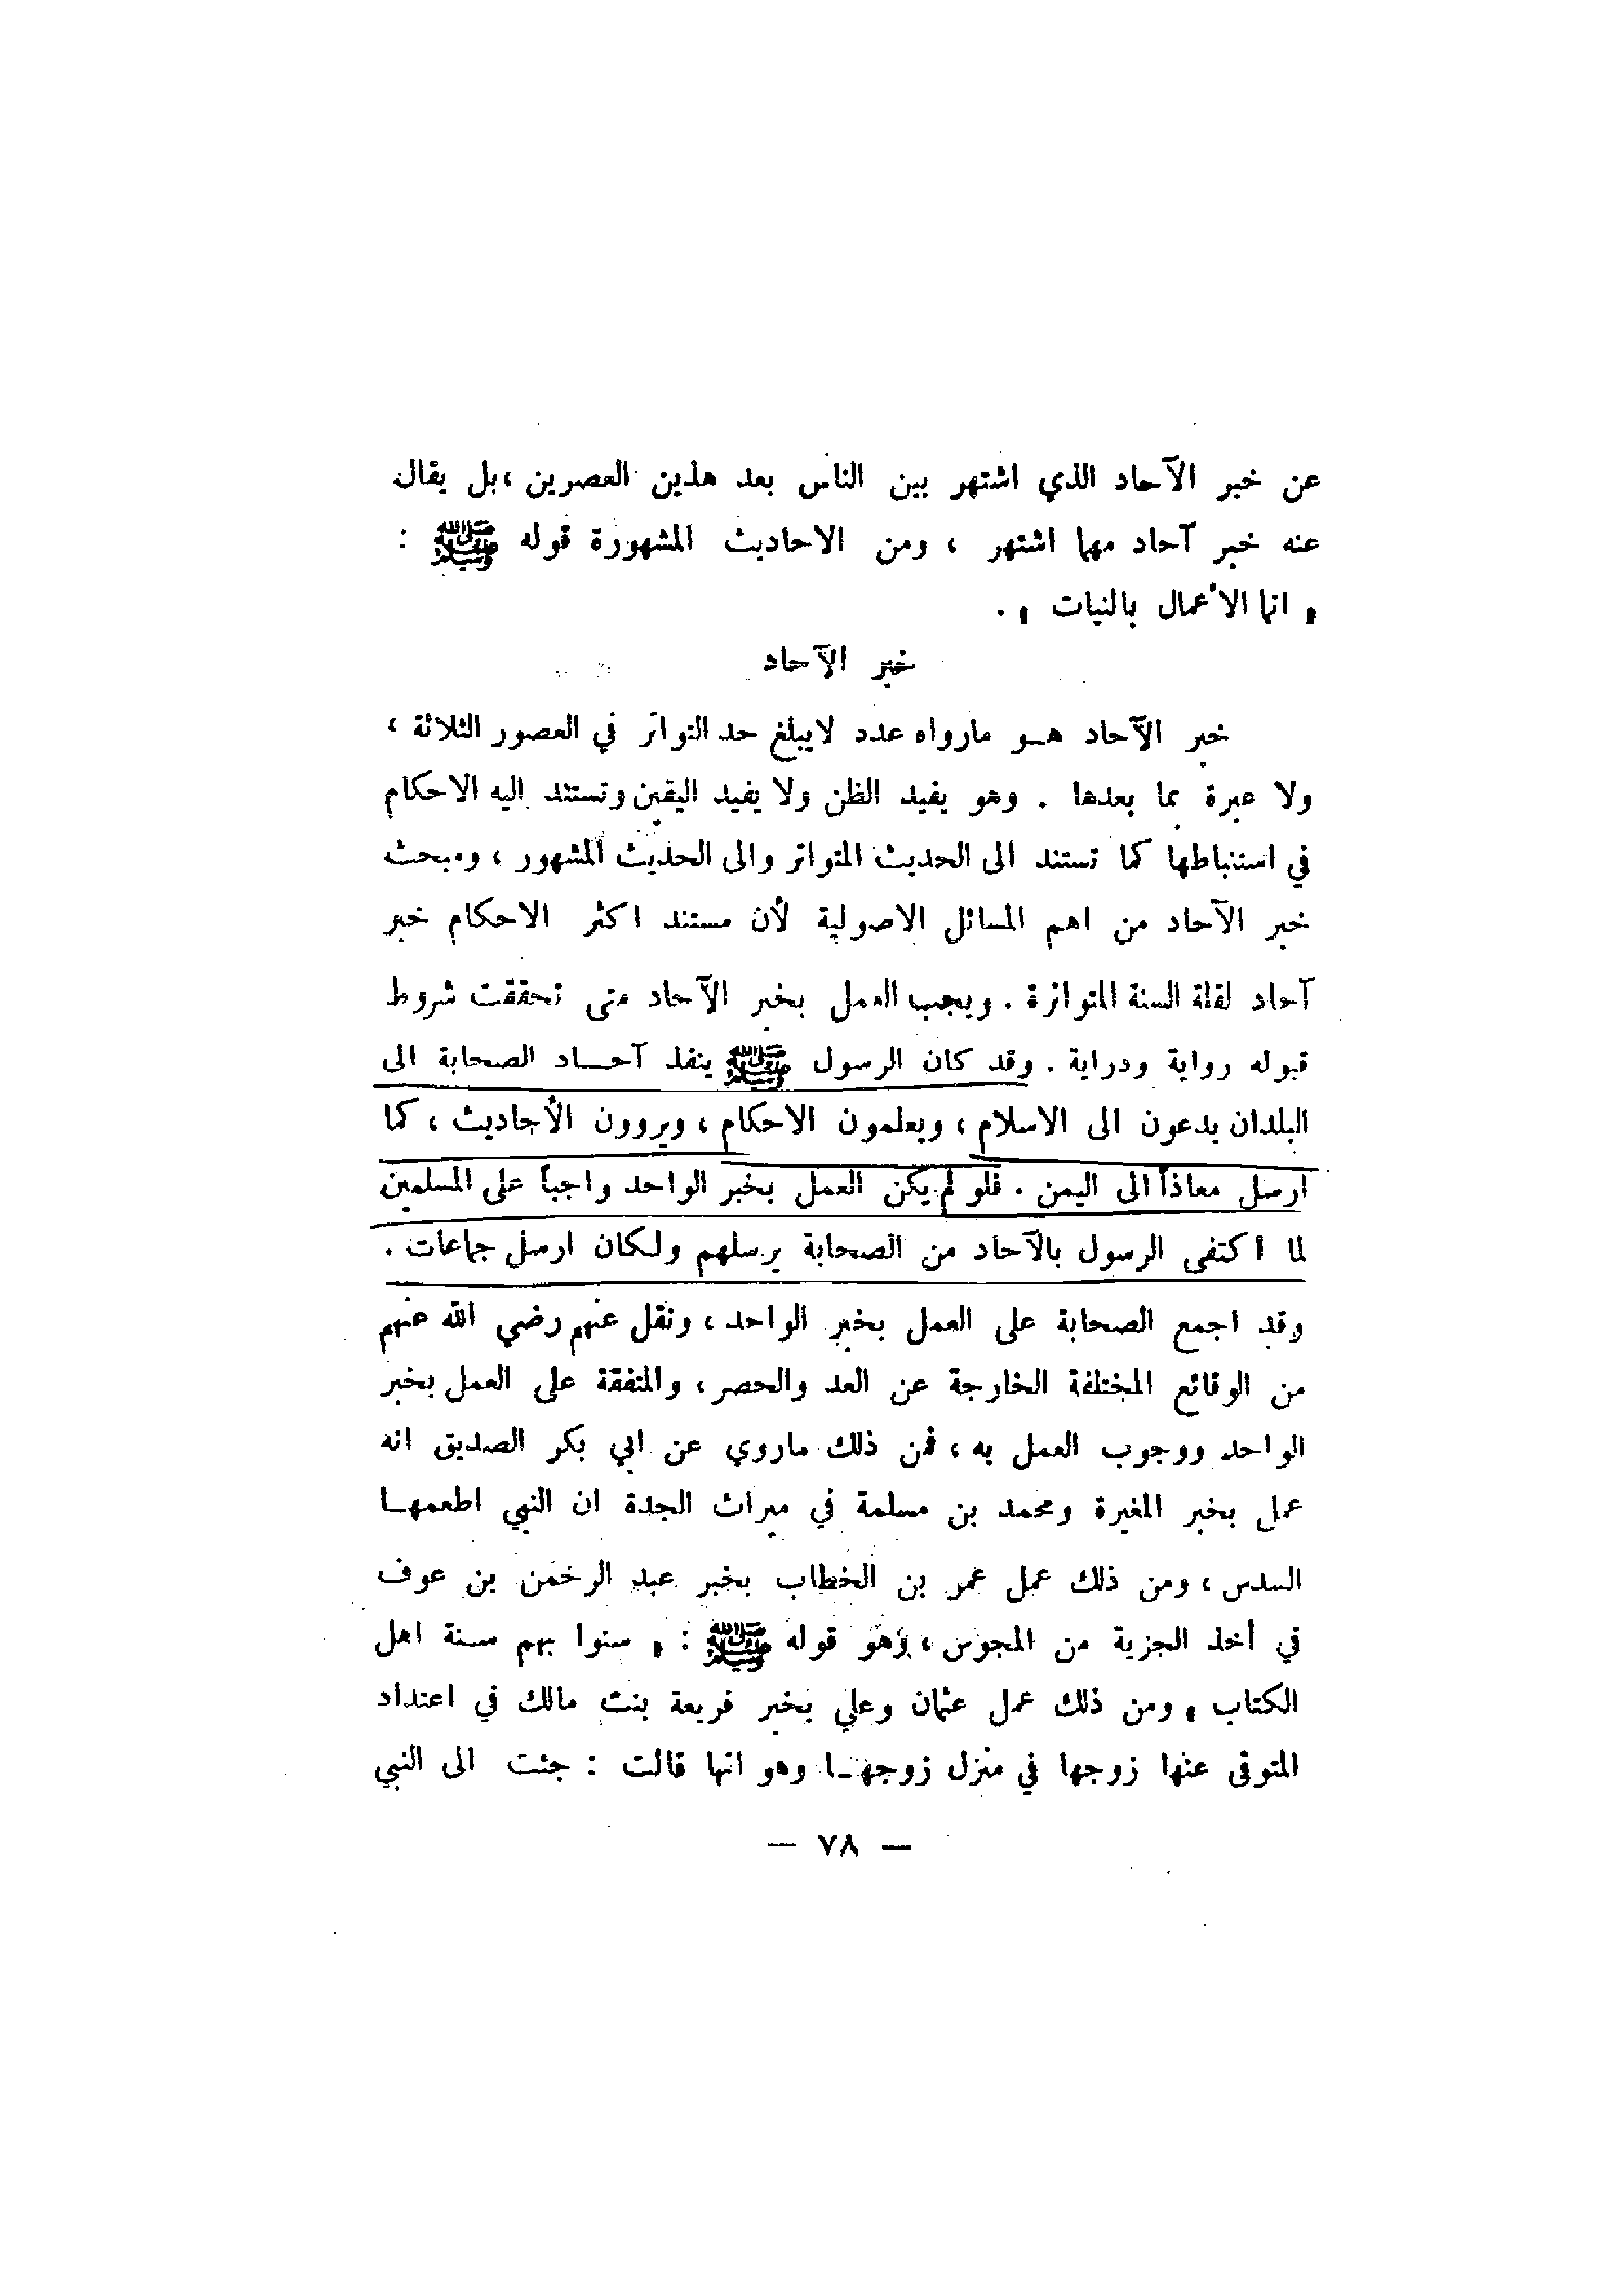 عن خبر الآحاد الذي اشتهر بين الناس بعد هذين العصرين ، بل يقال
عنه خبر آحاد مهما اشتهر ، ومن الاحاديث المشهورة قوله ﷺ :
« انما الأعمال بالنيات » .
خبر الآحاد
خبر الآحاد هـو مارواه عدد لايبلغ حد التواتر في العصور الثلاثة ،
ولا عبرة بما بعدها . وهو يفيد الظن ولا يفيد اليقين وتستند اليه الاحكام
في استنباطها كما تستند الى الحديث المتواتر والى الحديث المشهور ، ومبحث
خبر الآحاد من اهم المسائل الاصولية لأن مستند اكثر الاحكام خبر
آحاد لقلة السنة المتواترة . ويجب العمل بخبر الآحاد متى تحققت شروط
قبوله رواية ودراية . وقد كان الرسول ﷺ ينفذ آحـــاد الصحابة الى
البلدان يدعون الى الاسلام ، ويعلمون الاحكام ، ويروون الأحاديث ، كما
ارسل معاذاً الى اليمن . فلو لم يكن العمل بخبر الواحد واجباً على المسلمين
لما اكتفى الرسول بالآحاد من الصحابة يرسلهم ولكان ارسل جماعات .
وقد اجمع الصحابة على العمل بخبر الواحد ، ونقل عنهم رضي الله عنهم
من الوقائع المختلفة الخارجة عن العد والحصر ، والمتفقة على العمل بخبر
الواحد ووجوب العمل به ، فمن ذلك ماروي عن ابي بكر الصديق انه
عمل بخبر المغيرة ومحمد بن مسلمة في ميراث الجدة ان النبي اطعمهـا
السدس ، ومن ذلك عمل عمر بن الخطاب بخبر عبد الرحمن بن عوف
في أخذ الجزية من المجوس ، وهو قوله ﷺ : « سنوا بهم سـنة اهل
الكتاب » ومن ذلك عمل عثمان وعلي بخبر فريعة بنت مالك في اعتداد
المتوفى عنها زوجها في منزل زوجهـا وهو انها قالت : جئت الى النبي
— ٧٨ —